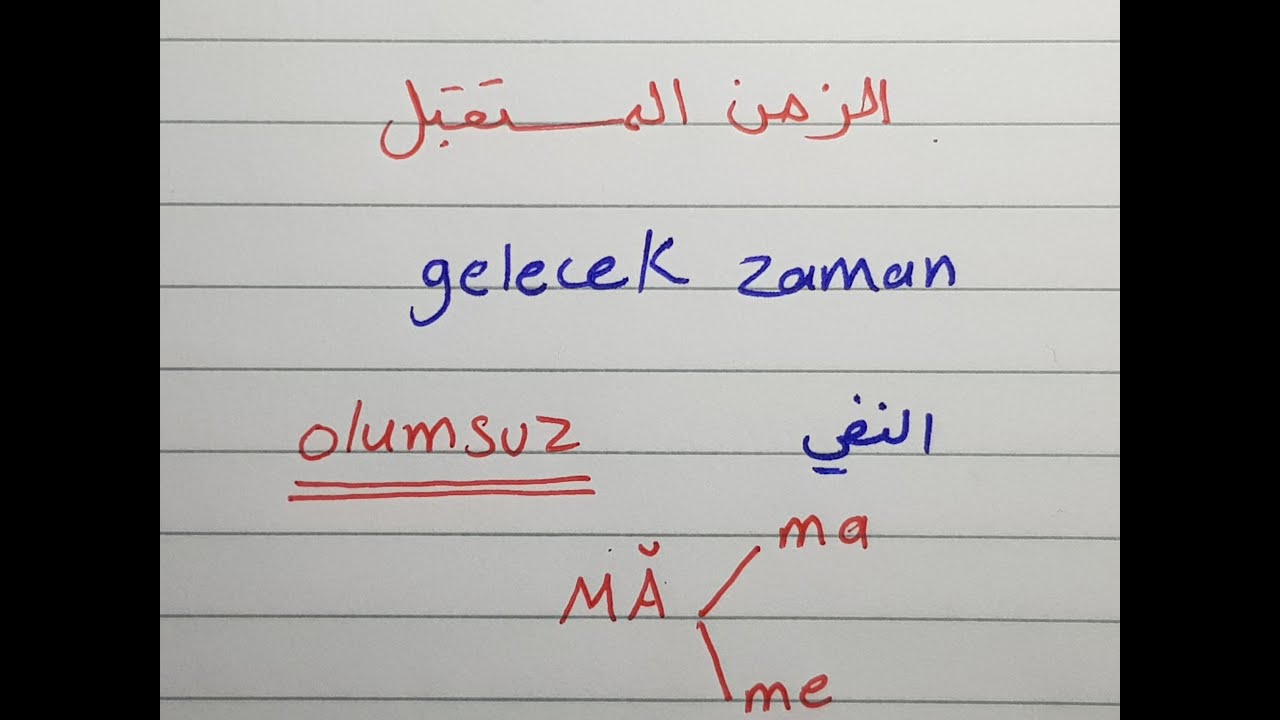 الزمن المستقبل
gelecek zaman
olumsuz النفي
ma
MĂ
me